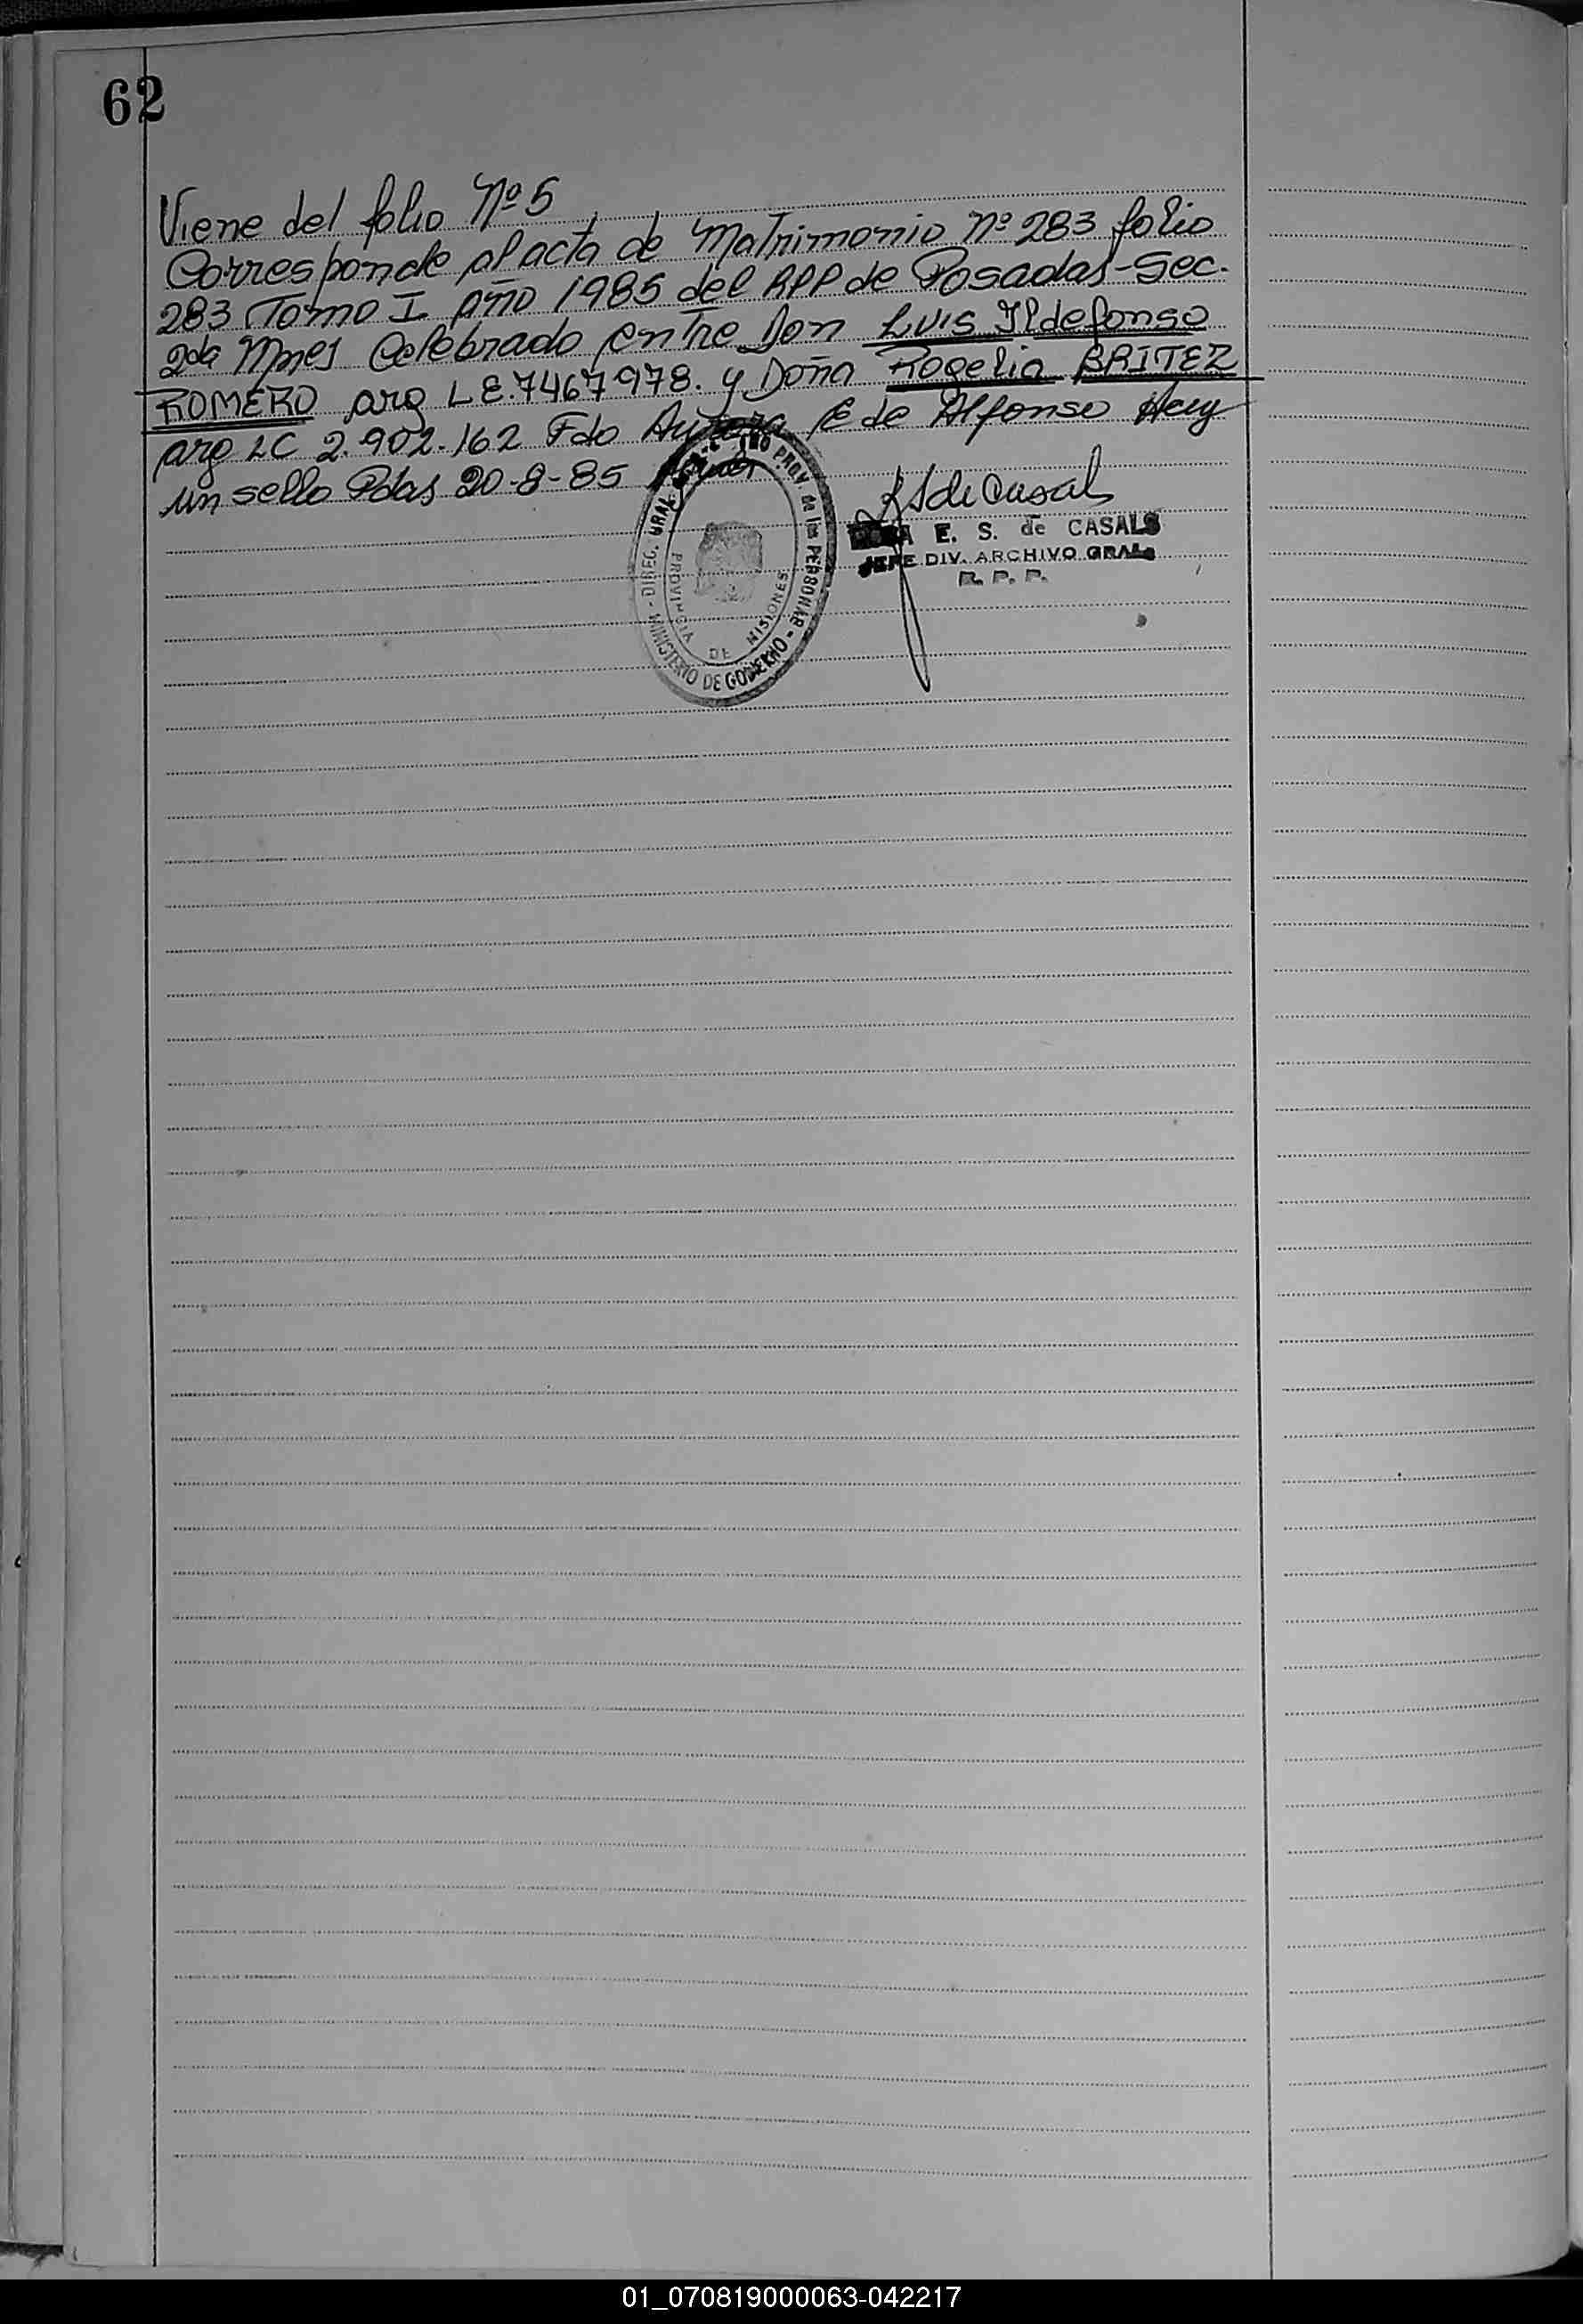 62
Viene del folio Nº 5
Corresponde al acta de Matrimonio Nº 283 folio
283 Tomo I año 1985 del RPP de Posadas-Sec.
2da Mnes Celebrado entre Don Luis Ildefonso
ROMERO arg LE.7467978. y Doña Rogelia BRITEZ
arg LC 2.902.162 Fdo Aurora E de Alfonso Hay
un sello Pdas 20-8-85
E. S. de CASALS
JEFE DIV. ARCHIVO GRAL
R. P. P.
MINISTERIO DE GOBIERNO - DIREC. GRAL. PROV. de las PERSONAS
PROVINCIA DE MISIONES
01_070819000063-042217